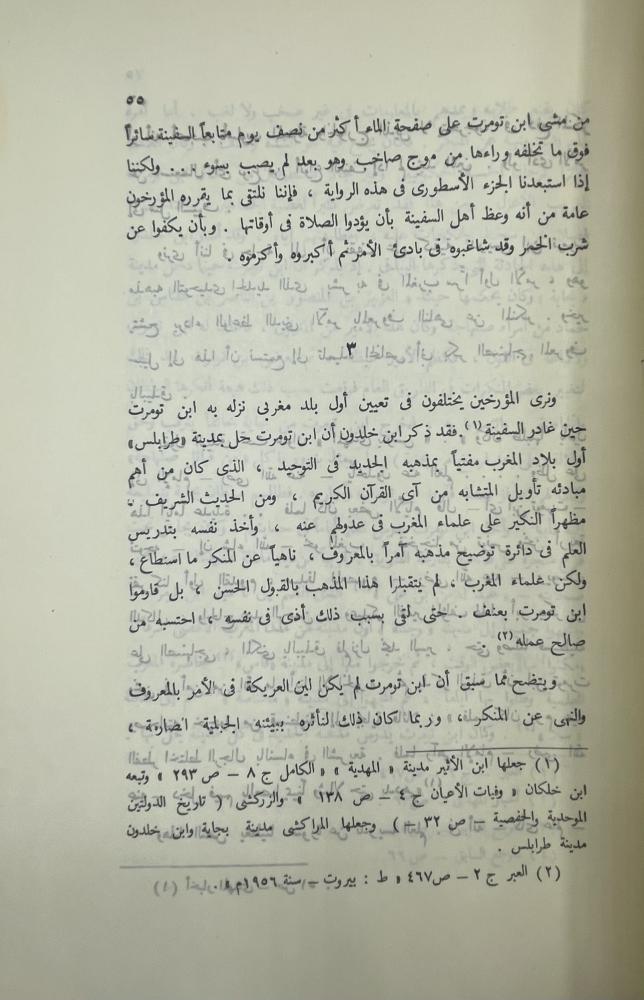 ٥٥
من مشى ابن تومرت على صفحة الماء أكثر من نصف يوم متابعاً السفينة سائراً
فوق ما تخلفه وراءها من موج صاخب وهو بعد لم يصب بسوء ... ولكننا
إذا استبعدنا الجزء الأسطورى فى هذه الرواية ، فإننا نلتقى بما يقرره المؤرخون
عامة من أنه وعظ أهل السفينة بأن يؤدوا الصلاة فى أوقاتها . وبأن يكفوا عن
شرب الخمر وقد شاغبوه فى بادئ الأمر ثم أكبروه وأكرموه .
٣
ونرى المؤرخين يختلفون فى تعيين أول بلد مغربى نزله به ابن تومرت
حين غادر السفينة (١) . فقد ذكر ابن خلدون أن ابن تومرت حل بمدينة «طرابلس»
أول بلاد المغرب مفتياً بمذهبه الجديد فى التوحيد ، الذى كان من أهم
مبادئه تأويل المتشابه من آى القرآن الكريم ، ومن الحديث الشريف .
مظهراً النكير على علماء المغرب فى عدولهم عنه ، وأخذ نفسه بتدريس
العلم فى دائرة توضيح مذهبه آمراً بالمعروف ، ناهياً عن المنكر ما استطاع ،
ولكن علماء المغرب ، لم يتقبلوا هذا المذهب بالقبول الحسن ، بل قاوموا
ابن تومرت بعنف . حتى لقى بسبب ذلك أذى فى نفسه ، احتسبه من
صالح عمله (٢) .
ويتضح مما سبق أن ابن تومرت لم يكن لين العريكة فى الأمر بالمعروف
والنهى عن المنكر ، وربما كان ذلك لتأثره ببيئته الجبلية الصارمة ،
(١) جعلها ابن الأثير مدينة « المهدية » « الكامل ج ٨ – ص ٢٩٣ » وتبعه
ابن خلكان « وفيات الأعيان ج ٤ – ص ١٣٨ » والزركشى ( تاريخ الدولتين
الموحدية والحفصية – ص ٣٢ – ) وجعلها المراكشى مدينة بجاية وابن خلدون
مدينة طرابلس .
(٢) العبر ج ٢ – ص ٤٦٧ « ط : بيروت – سنة ١٩٥٦م » .